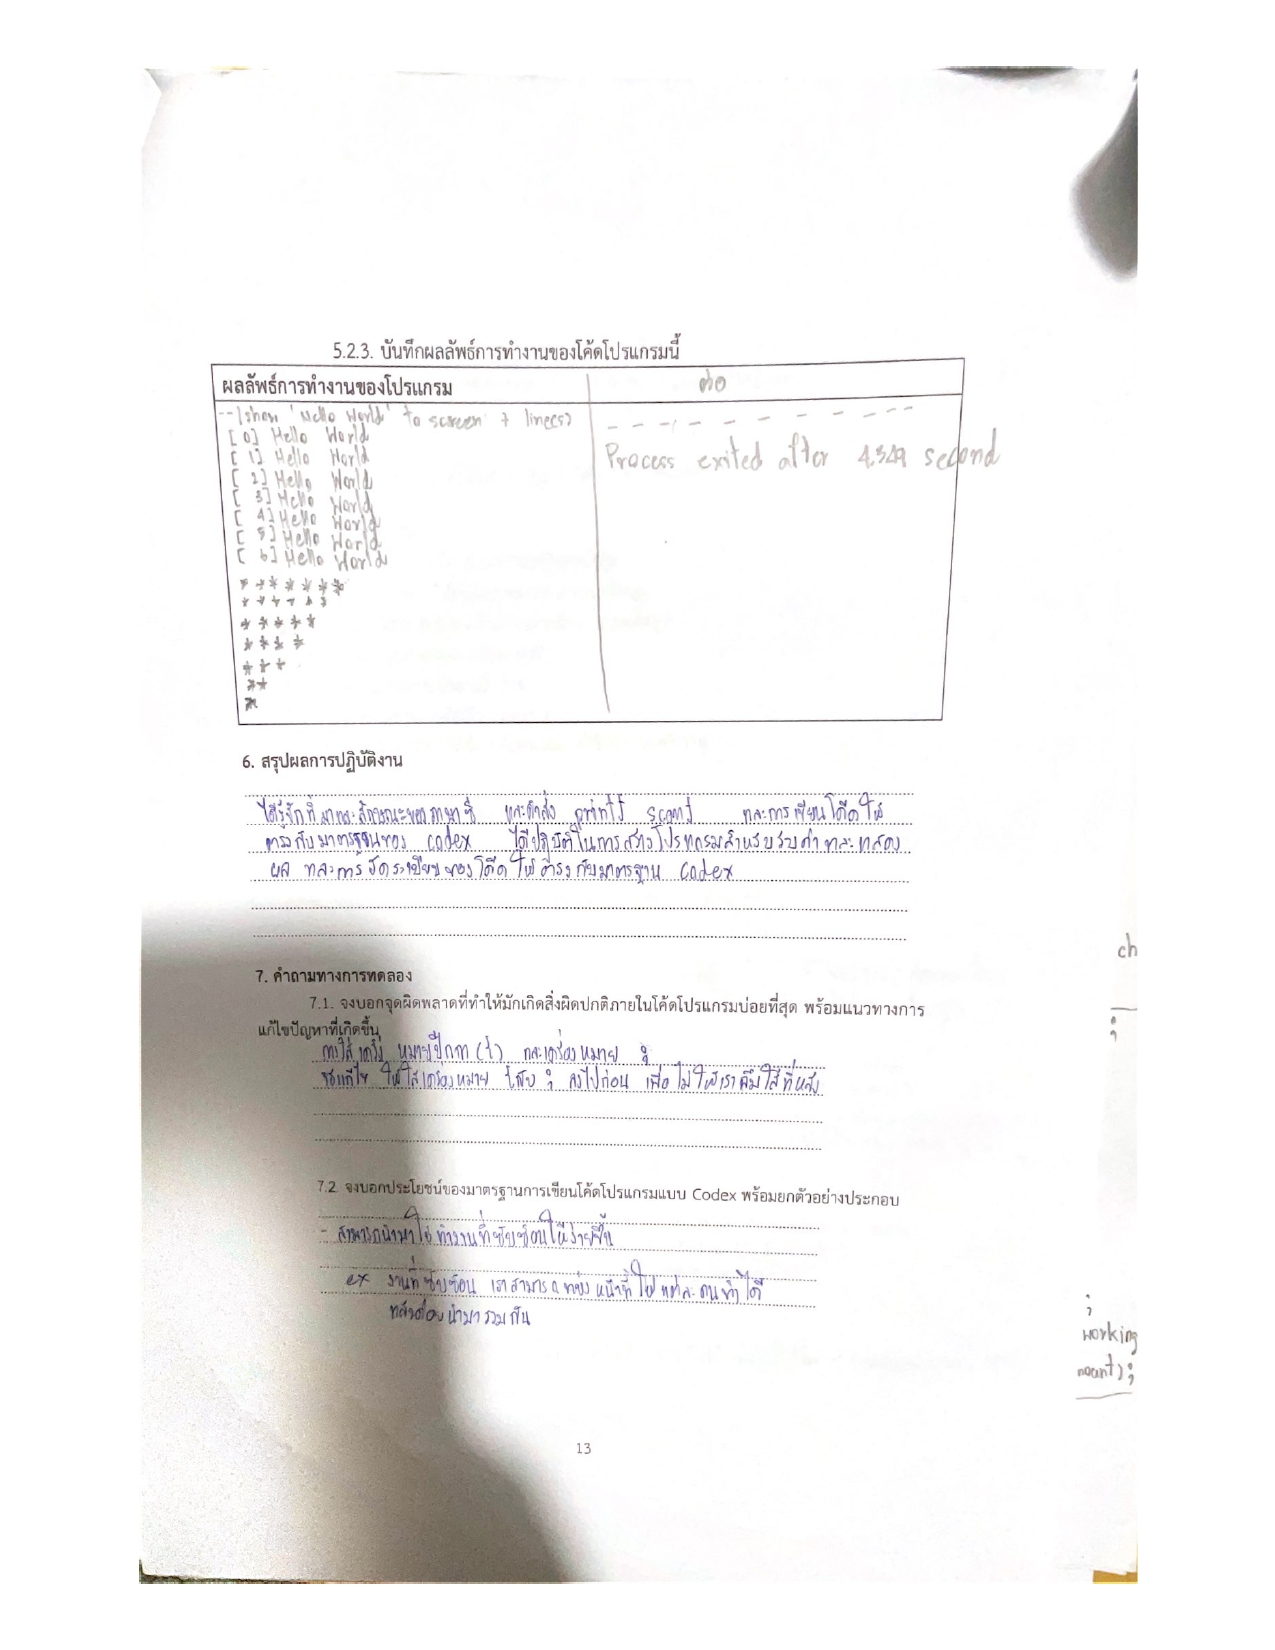 5.2.3. บันทึกผลลัพธ์การทำงานของโค้ดโปรแกรมนี้
ผลลัพธ์การทำงานของโปรแกรม
ต่อ
--|show 'Hello World' to screen 7 line(s)
[ 0] Hello World
[ 1] Hello World
[ 2] Hello World
[ 3] Hello World
[ 4] Hello World
[ 5] Hello World
[ 6] Hello World
*******
******
*****
****
***
**
*
- - - - - - - - - -
Process exited after 4.349 second
6. สรุปผลการปฏิบัติงาน
ได้รู้จักที่มาและลักษณะของภาษาซี และคำสั่ง printf scanf และการเขียนโค๊ดให้
ตรงกับมาตรฐานของ codex ได้ปฏิบัติในการสร้างโปรแกรมสำหรับรับค่าและแสดง
ผล และการจัดระเบียบของโค๊ดให้ตรงกับมาตรฐาน codex
7. คำถามทางการทดลอง
7.1. จงบอกจุดผิดพลาดที่ทำให้มักเกิดสิ่งผิดปกติภายในโค้ดโปรแกรมบ่อยที่สุด พร้อมแนวทางการ
แก้ไขปัญหาที่เกิดขึ้น
การใส่เครื่องหมายปีกกา ({) และเครื่องหมาย ;
แก้ไข ให้ใส่เครื่องหมาย ; ลงไปก่อน เพื่อไม่ให้เราลืมใส่ทีหลัง
7.2. จงบอกประโยชน์ของมาตรฐานการเขียนโค้ดโปรแกรมแบบ Codex พร้อมยกตัวอย่างประกอบ
- สามารถนำมาใช้ทำงานที่ซับซ้อนให้ง่ายขึ้น
ex งานที่ซับซ้อน เราสามารถแบ่งหน้าที่ให้แต่ละคนทำได้
แล้วค่อยนำมารวมกัน
ch
;
;
working
mount);
13